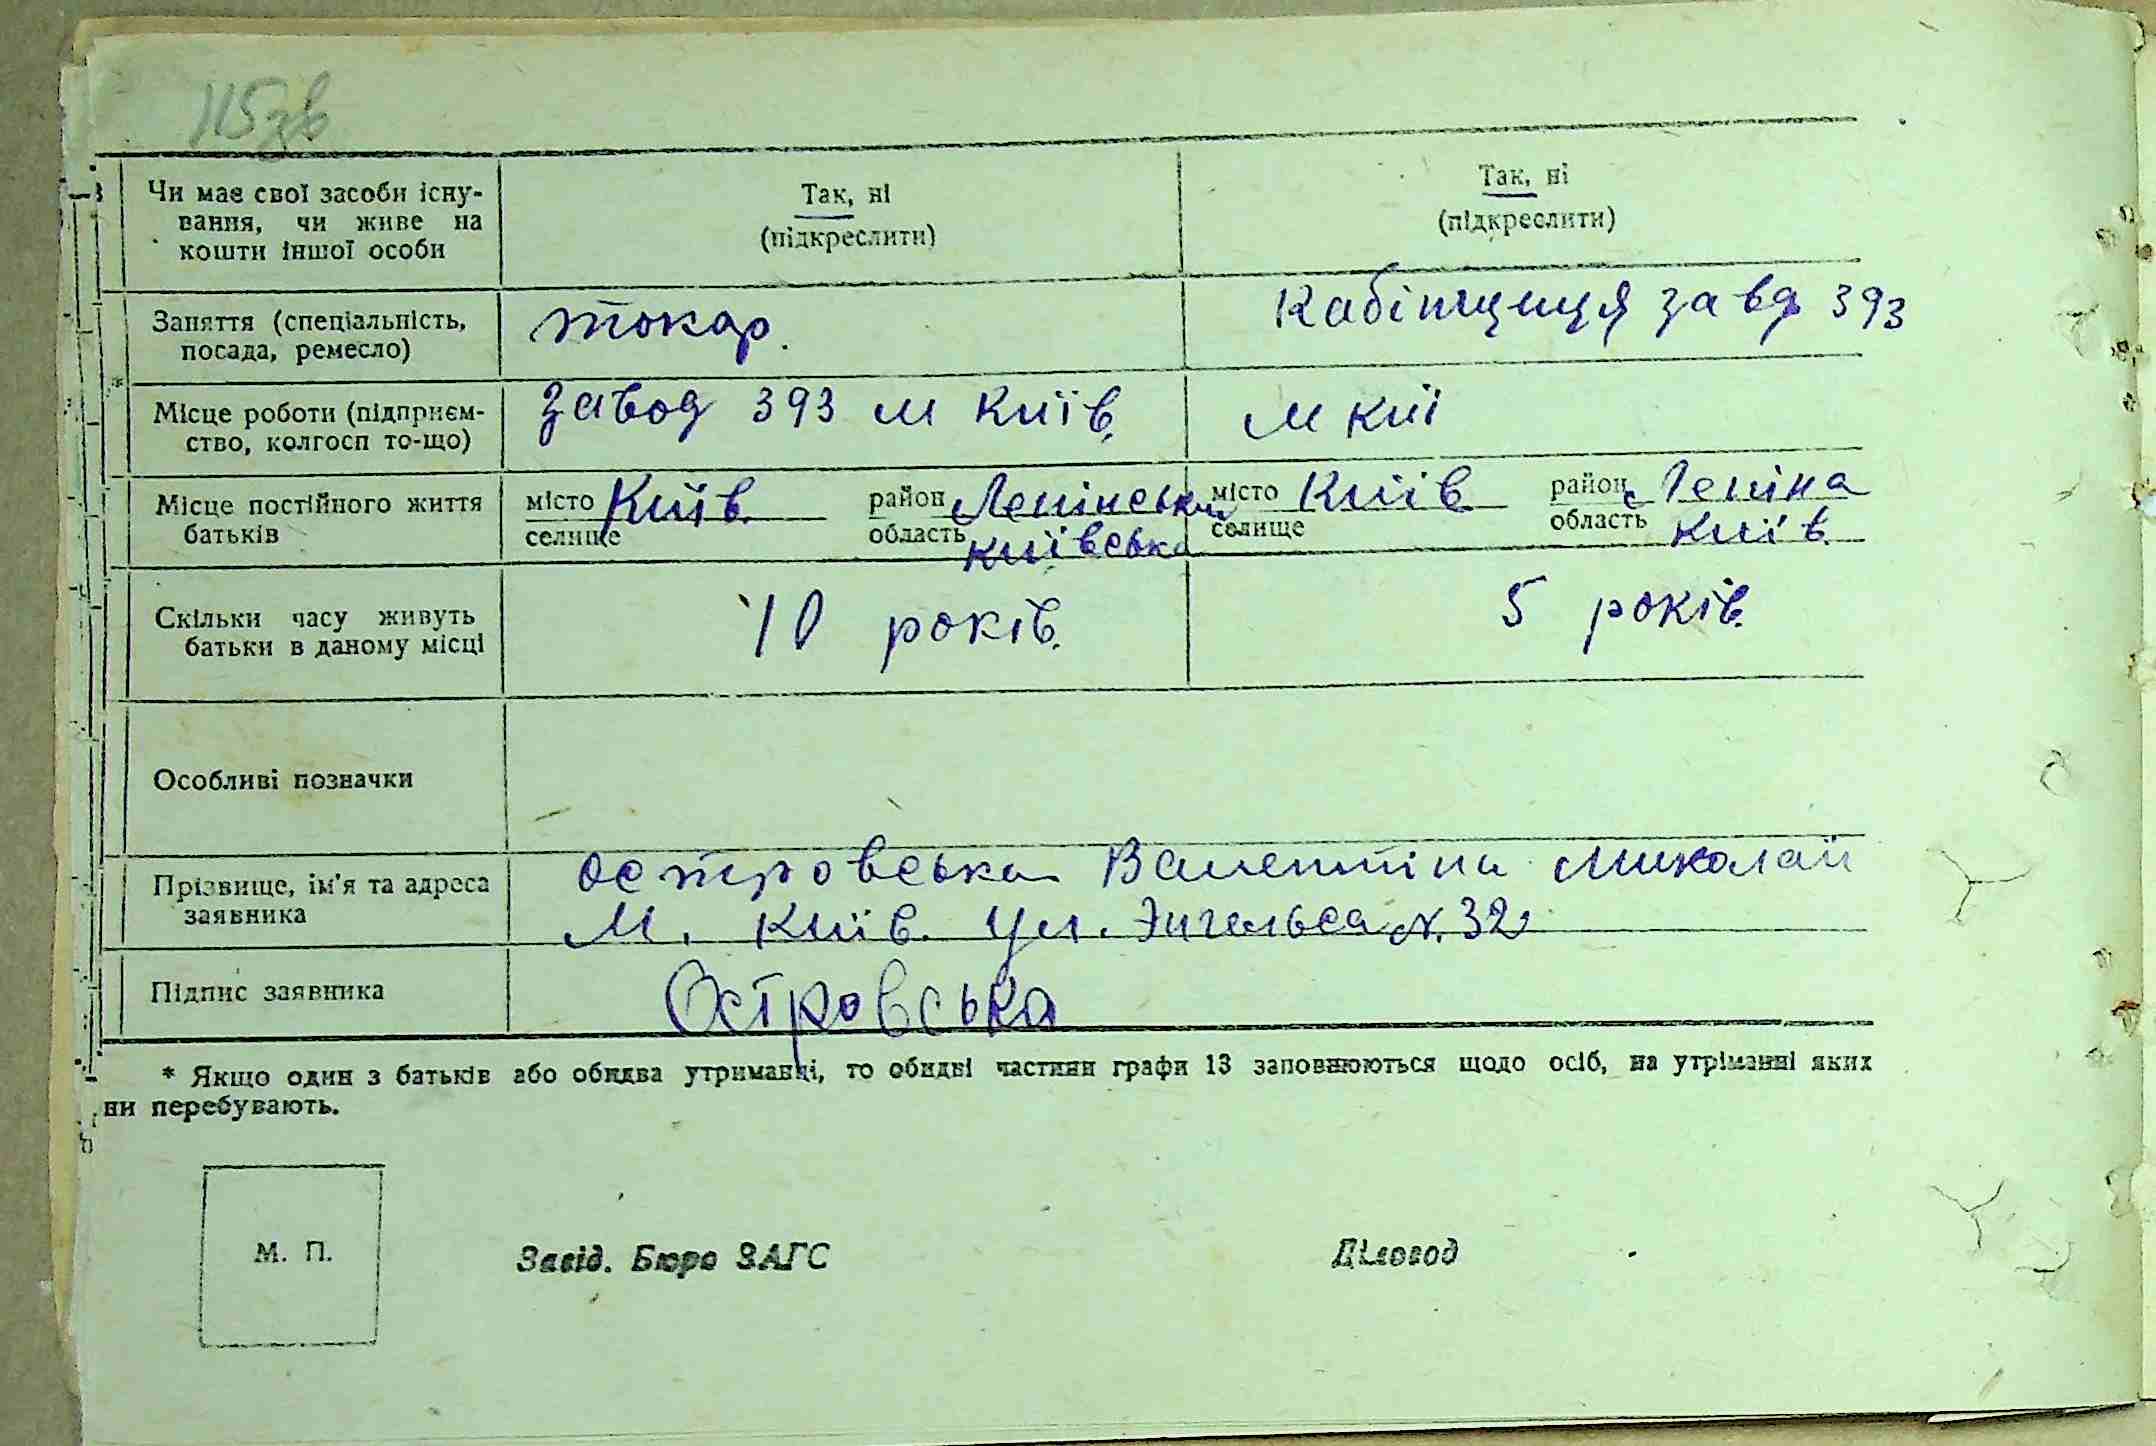 115зв
Чи має свої засоби існу-
вання, чи живе на
кошти іншої особи
Так, ні
(підкреслити)
Так, ні
(підкреслити)
Заняття (спеціальність,
посада, ремесло)
токар.
Кабінщиця завд 393
Місце роботи (підприєм-
ство, колгосп то-що)
завод 393 м Київ.
м киї
Місце постійного життя
батьків
місто Київ. район Ленінськи
селище область київська
місто Київ район Леніна
селище область Київ.
Скільки часу живуть
батьки в даному місці
10 років.
5 років.
Особливі позначки
Прізвище, ім'я та адреса
заявника
Островська Валентіна Миколаи
М. Київ. Ул. Энгельса №. 32
Підпис заявника
Островська
* Якщо один з батьків або обидва утриманці, то обидві частини графи 13 заповнюються щодо осіб, на утріманні яких
ни перебувають.
М. П.
Завід. Бюро ЗАГС
Діловод